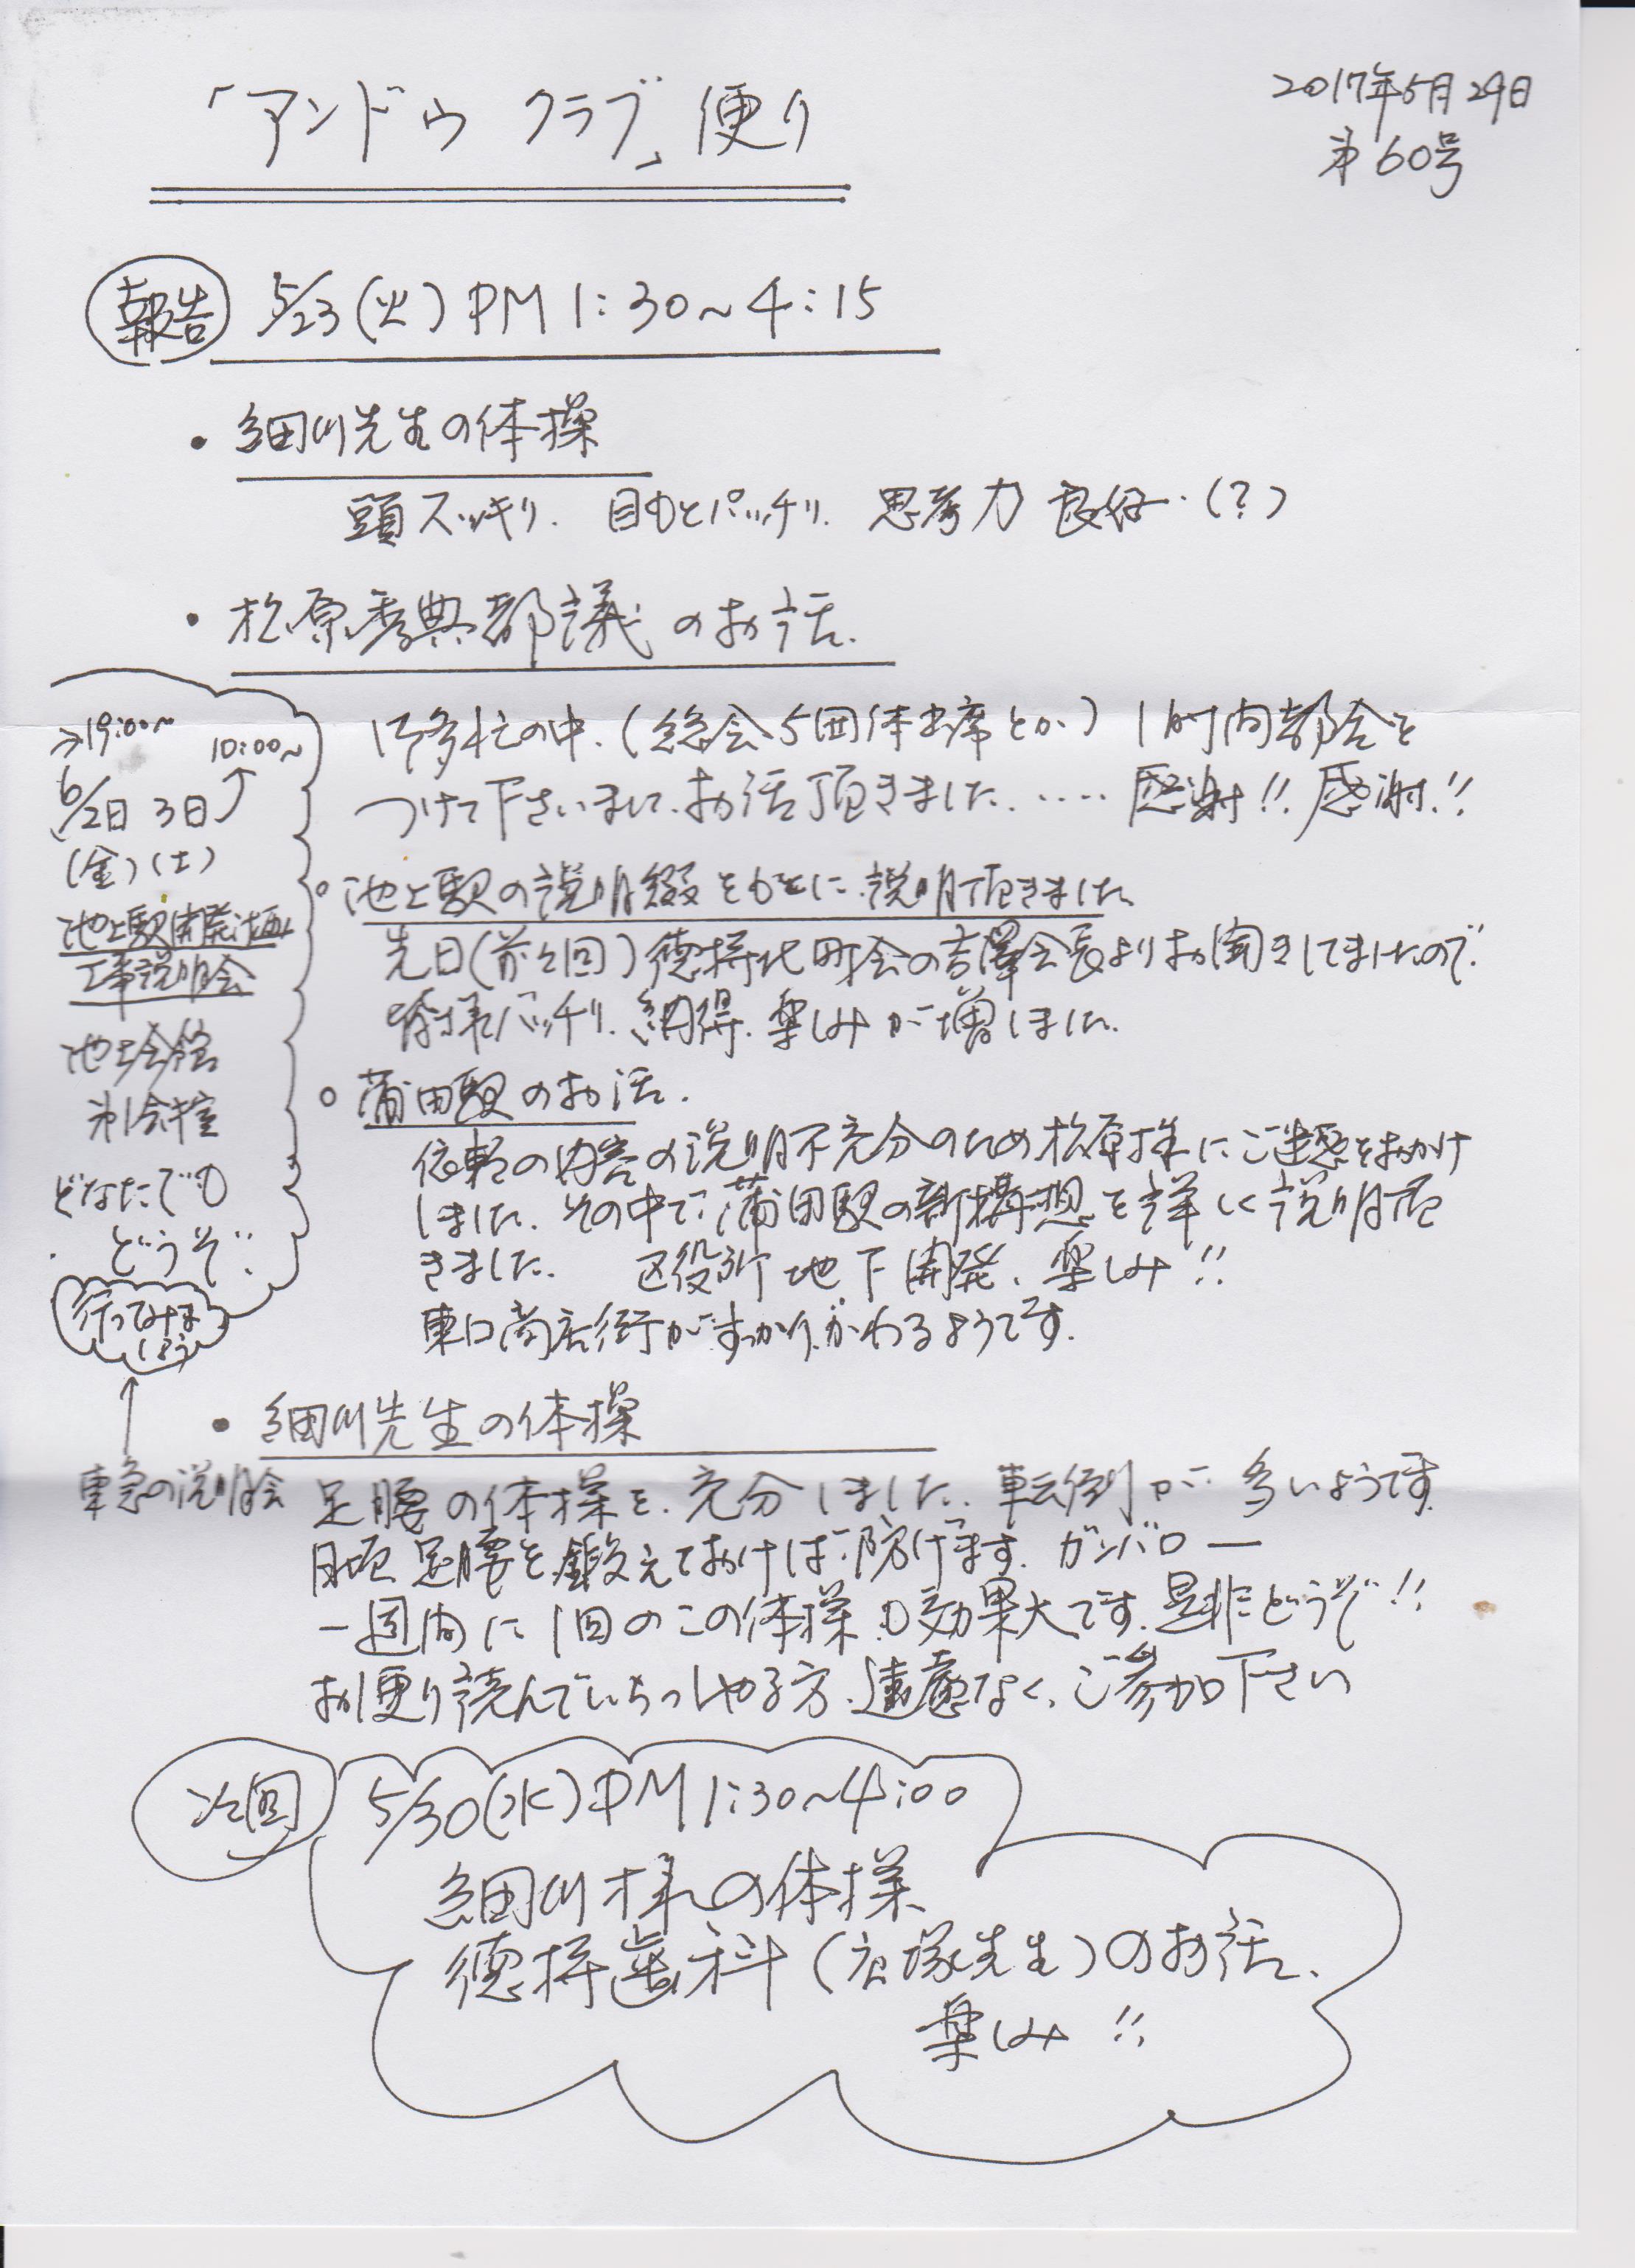 「アンドウ クラブ」便り
2017年5月29日
第60号
報告 5/23(火)PM1:30~4:15
・細川先生の体操
頭スッキリ. 目もとパッチリ. 思考力 良好.(?)
・松原秀典都議のお話.
御多忙の中.(総会5団体出席とか)1時間都合を
つけて下さいまして.お話頂きました.‥‥感謝!!感謝.!!
○池上駅の説明綴をもとに.説明頂きました.
先日(前々回)徳持北町会の吉澤会長よりお聞きしてましたので.
皆様バッチリ.納得.楽しみが増しました.
○蒲田駅のお話.
依頼の内容の説明不充分のため松原様にご迷惑をおかけ
しました.その中で.蒲田駅の新構想を詳しく説明頂
きました. 区役所地下開発、楽しみ!!
東口商店街がすっかりかわるようです.
→19:00~
10:00~
6/2日 3日
(金)(土)
池上駅開発計画
工事説明会
池上会館
第1会議室
どなたでも
どうぞ.
行ってみま
しょう
東急の説明会
・細川先生の体操
足腰の体操を.充分しました.転倒が多いようです.
日頃足腰を鍛えておけば.防げます.ガンバロー
一週間に1回のこの体操も効果大です.是非どうぞ!!
お便り読んでいらっしゃる方.遠慮なく、ご参加下さい
次回 5/30(水)PM1:30~4:00
細川様の体操、
徳持歯科( 塚先生)のお話、
楽しみ!!